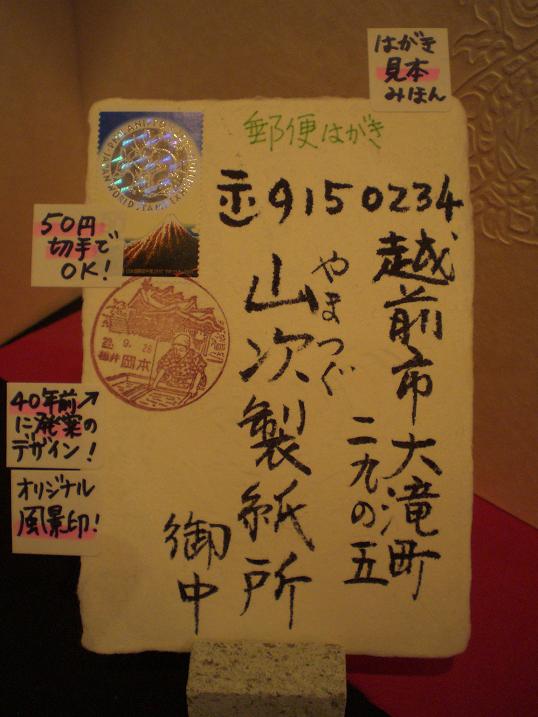 はがき
見本
みほん
郵便はがき
〒9150234
越前市大滝町
二九の五
やまつぐ
山次製紙所
御中
50円
切手で
OK!
22.9.28
福井 岡本
40年前↗
に発案の
デザイン!
オリジナル
風景印!